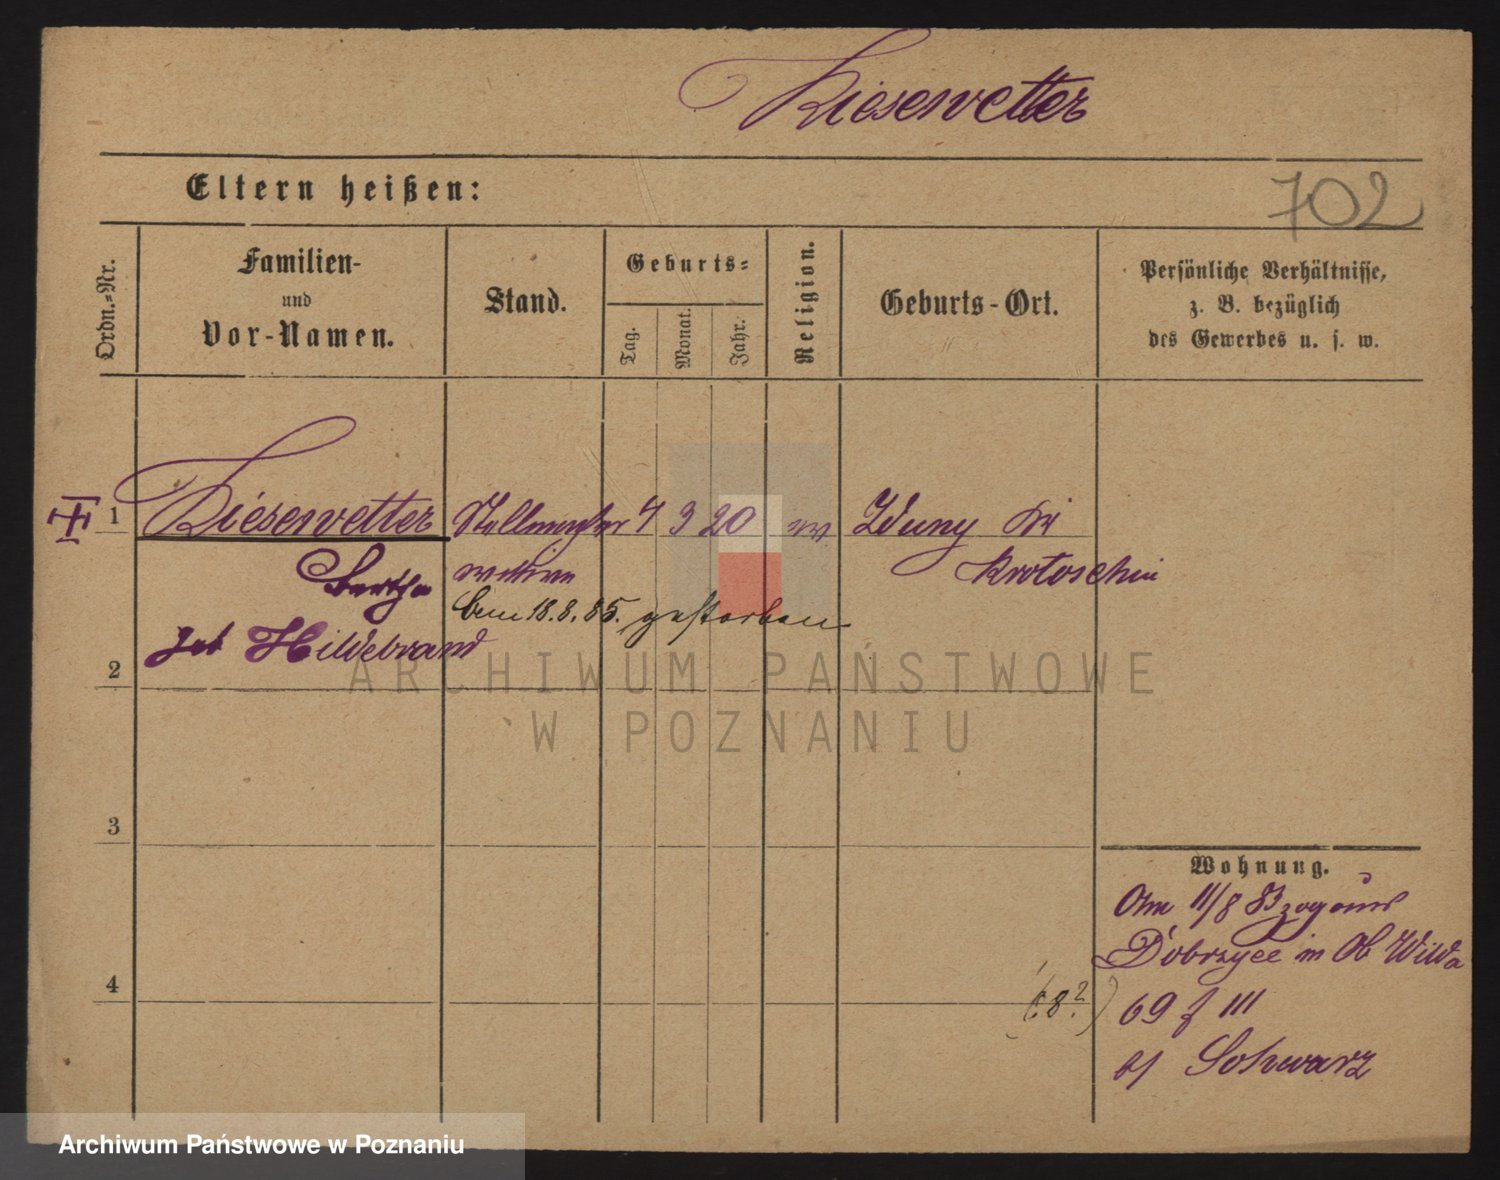 Kiesewetter
Eltern heißen:
702
Ordn.-Nr.
Familien-
und
Vor-Namen.
Stand.
Geburts-
Tag.
Monat.
Jahr.
Religion.
Geburts-Ort.
Persönliche Verhältnisse,
z. B. bezüglich
des Gewerbes u. s. w.
1 Kiesewetter Stellmacher 4 3 20 Zduny Kr
Bertha wittwe Krotoschin
18.8.85. gestorben
geb Hildebrand
2
3
4
Wohnung.
Am 11/8 83 zog aus
Dobrzyce in Ob Wilda
(8?) 69 III
b/ Schwarz
ARCHIWUM PAŃSTWOWE
W POZNANIU
Archiwum Państwowe w Poznaniu